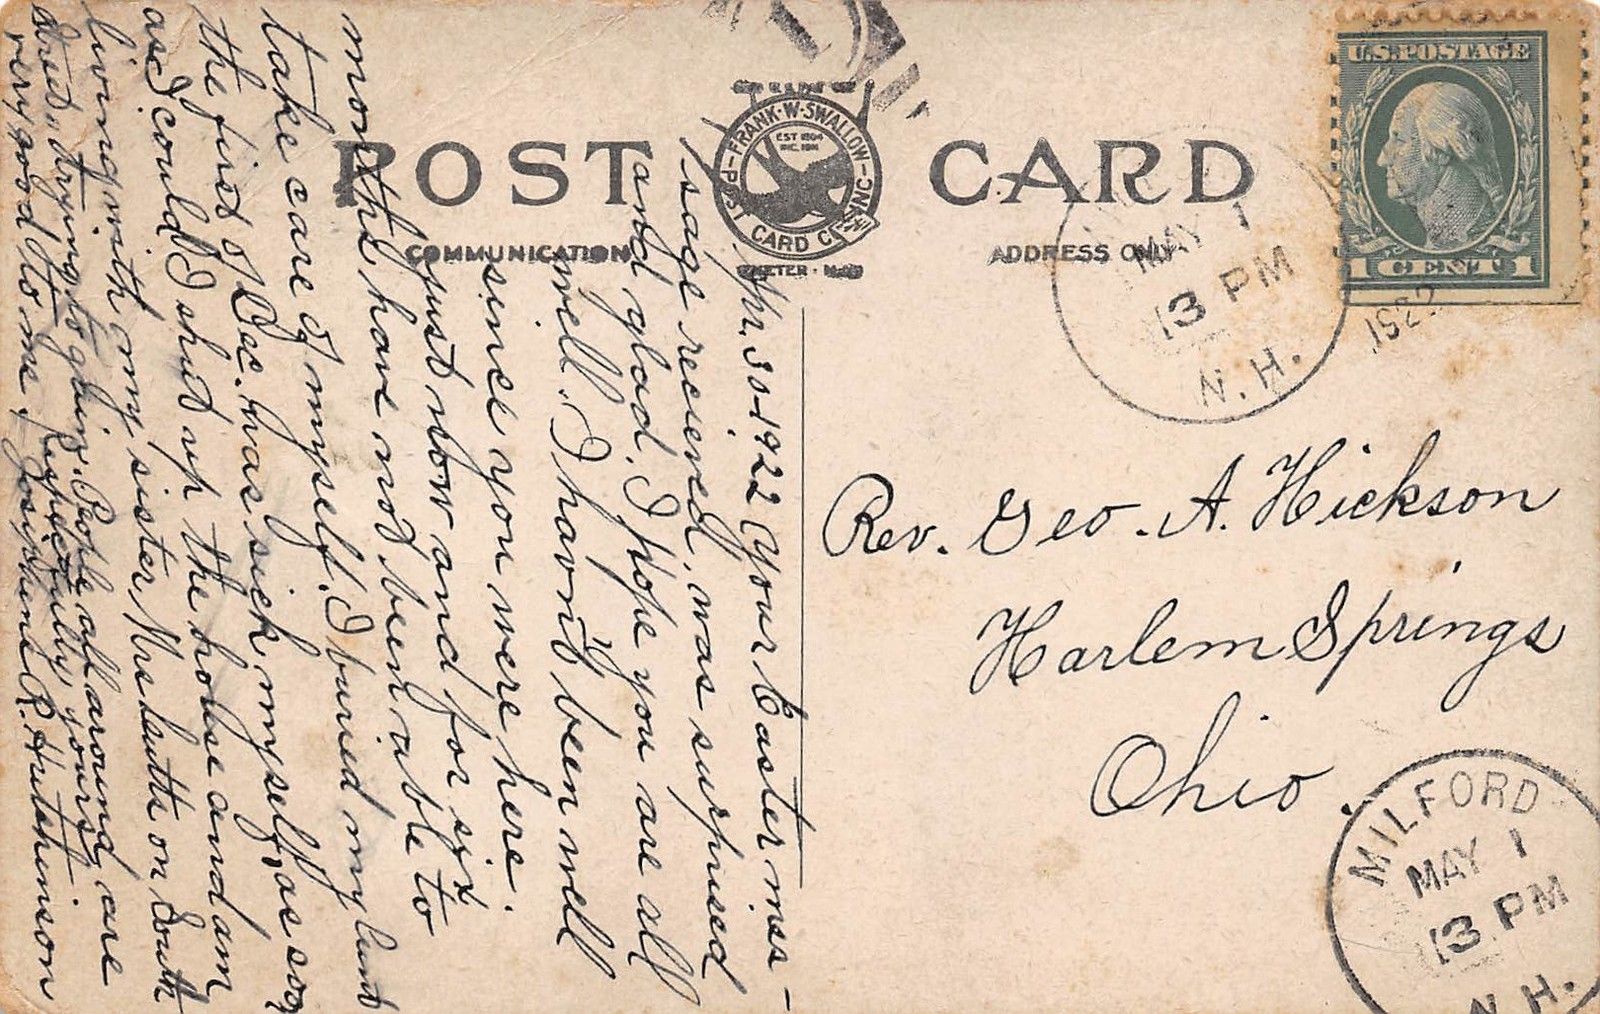 POST CARD
FRANK·W·SWALLOW
POST CARD CO. INC.
EST 1884
INC. 1911
EXETER · N.H.
COMMUNICATION
ADDRESS ONLY
U.S. POSTAGE
1 CENT 1
MAY 1
13 PM
N.H.
Apr. 30-1922 Your Easter mes-
sage recieved, was surprised
and glad. I hope you are all
well. I havn't been well
since you were here.
just now and for six
months have not been able to
take care of myself. I buried my aunt
the first of Dec. was sick myself, as soon
as I could I shut up the house and am
living with my sister Mrs on South
Street. trying to gain. People all around are
very good to me, Respectfully yours,
Josephine R. Hutchinson
Rev. Geo. A. Hickson
Harlem Springs
Ohio.
MILFORD
MAY 1
13 PM
N.H.